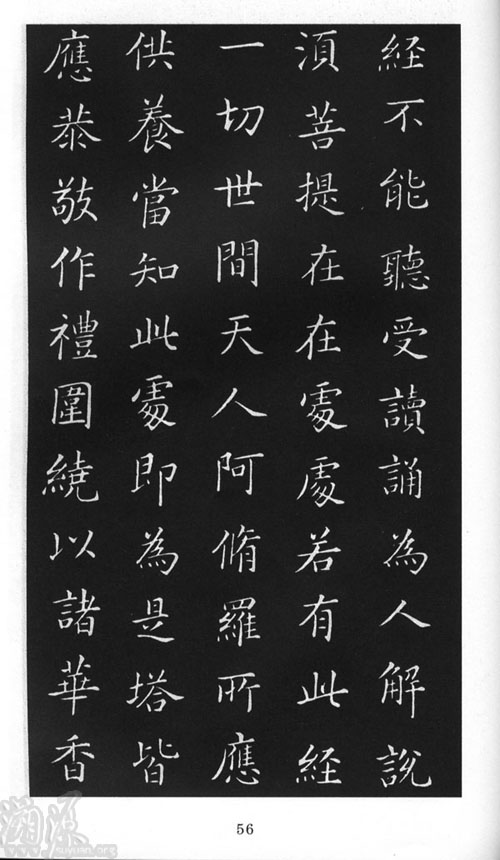 経不能聽受讀誦為人解說
湏菩提在在處處若有此経
一切世間天人阿脩羅所應
供養當知此處即為是塔皆
應恭敬作禮圍繞以諸華香
56
溯源
suyuan.org